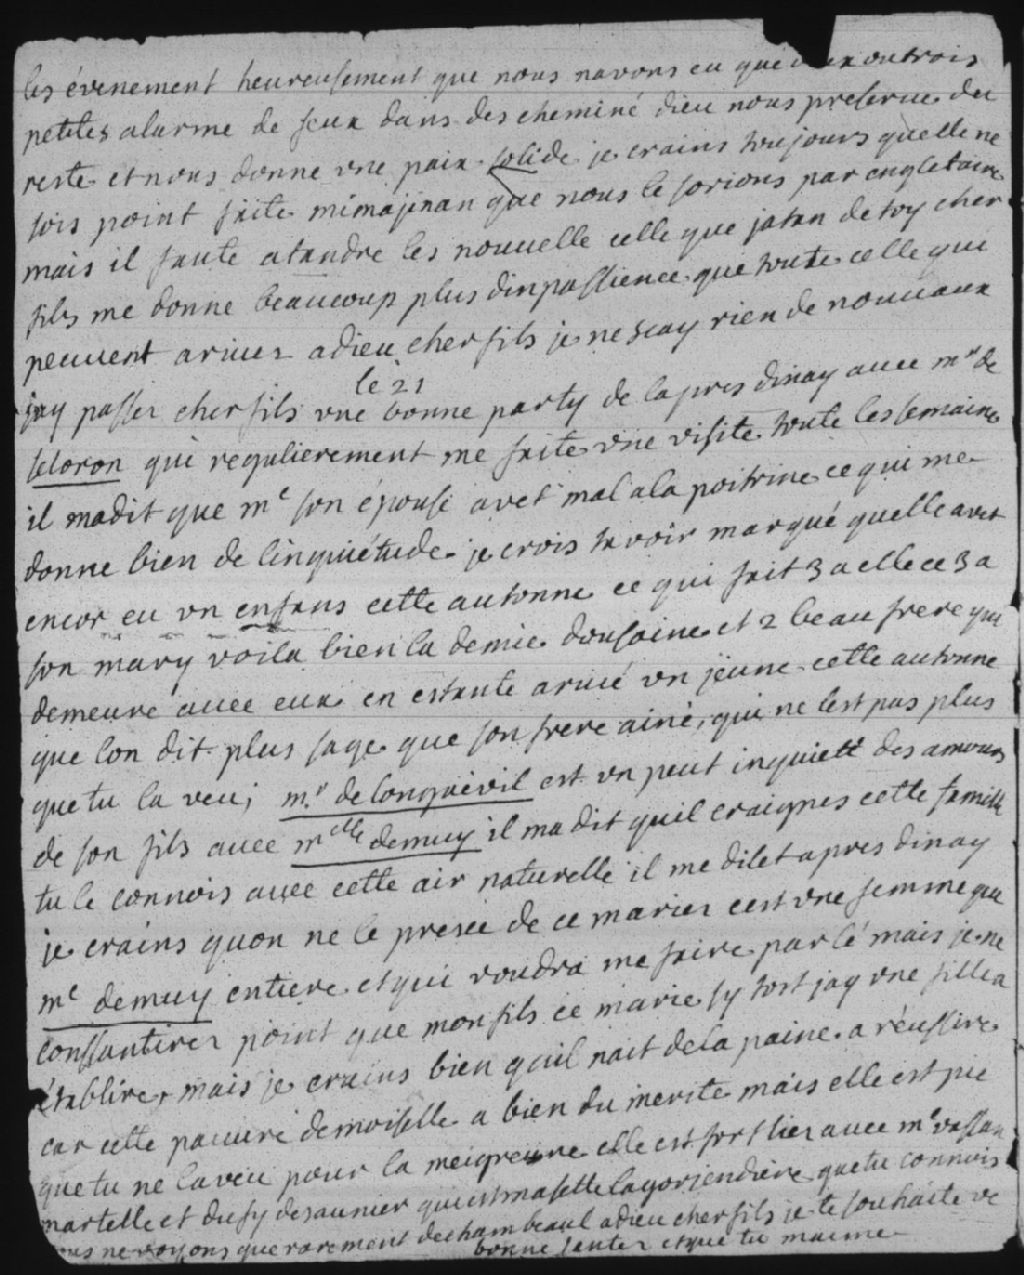 les évenement heureusement que nous navons eu que deux ou trois
petites alarme de feux dans des cheminé dieu nous preserve du
reste et nous donne une paix solide je crains toujours quelle ne
sois point faite mimajinan que nous le sorions par engletaire
mais il faute atandre les nouvelle celle que jatan de toy cher
fils me donne beaucoup plus dinpassience que toute celle qui
peuvent ariver adieu cher fils je ne scay rien de nouvaux
le 21
jay passer cher fils une bonne party de lapres dinay avec mr de
seloron qui regulierement me faite une visite toute les semaine
il madit que me son épouse avet mal a la poitrine ce qui me
donne bien de linquiétude je crois tavoir marqué quelle avet
encor eu un enfans cette autonne ce qui fait 3 a elle ce 3 a
son mary voila bien la demie dousaine et 2 beau frere qui
demeure avec eux en estante arivé un jeune cette autonne
que lon dit plus sage que son frere ainé, qui ne lest pas plus
que tu la veu; mr de longuevil est un peut inquiett des amours
de son fils avec melle demuy il ma dit quil craignes cette famille
tu le connois avec cette air naturelle il me dilet apres dinay
je crains quon ne le presée de ce marier cest une femme que
me demuy entiere et qui voudra me faire parlé mais je ne
conssantirer point que mon fils ce marie sy tost jay une fille a
établire, mais je crains bien quil nait de la paine a réussire
car cette pauvre demoiselle a bien du merite mais elle est pie
que tu ne la veu pour la meigreure elle est fort lier avec me vassan
martelle et dufy desaunier qui est maselle la gorjendiere que tu connois
nous ne voyons que rarement dechambeaul adieu cher fils je te souhaite ve
bonne santer et que tu maime